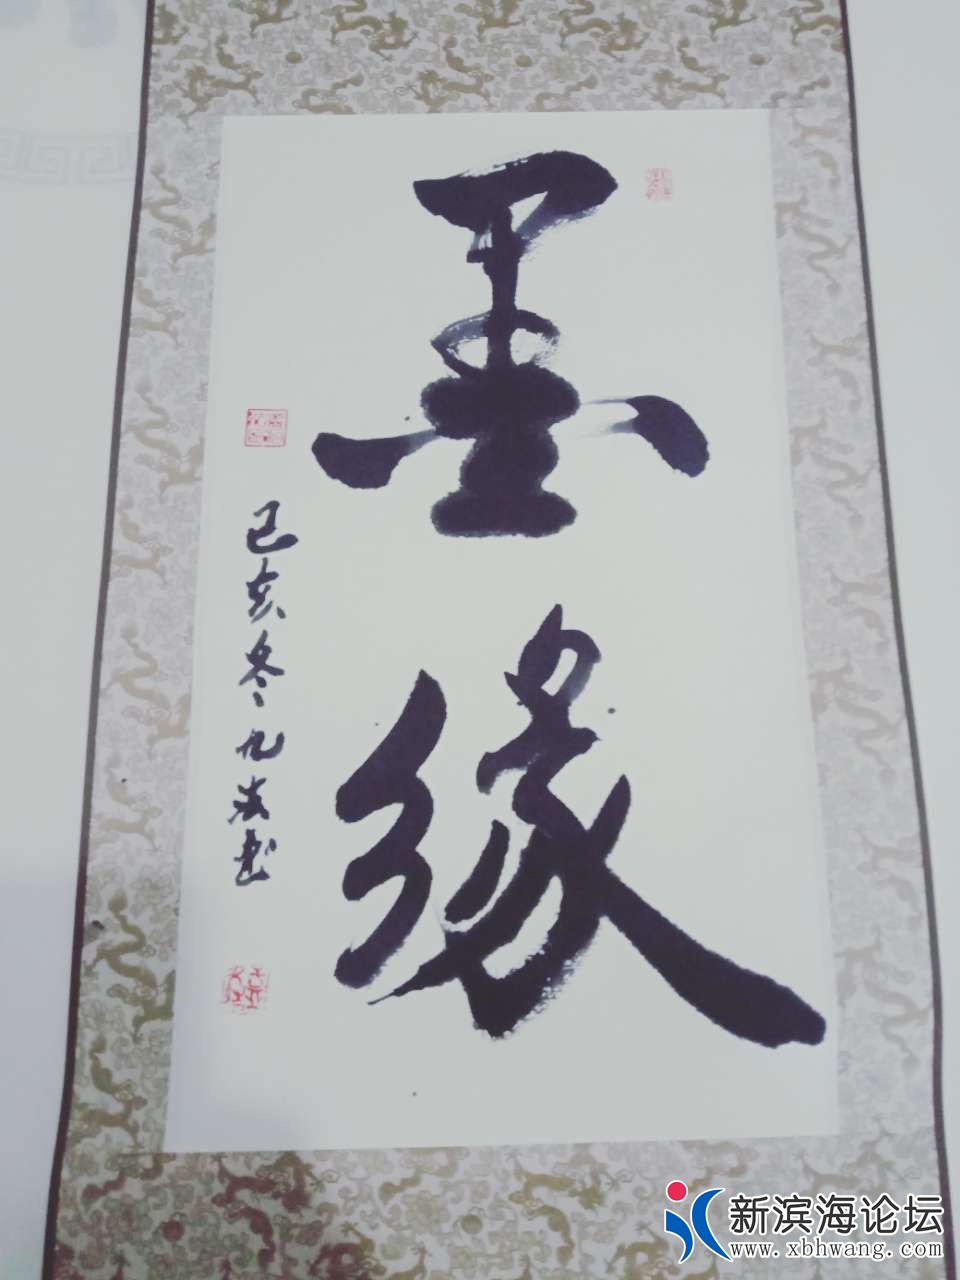 墨
缘
己亥冬九
新滨海论坛
www.xbhwang.com